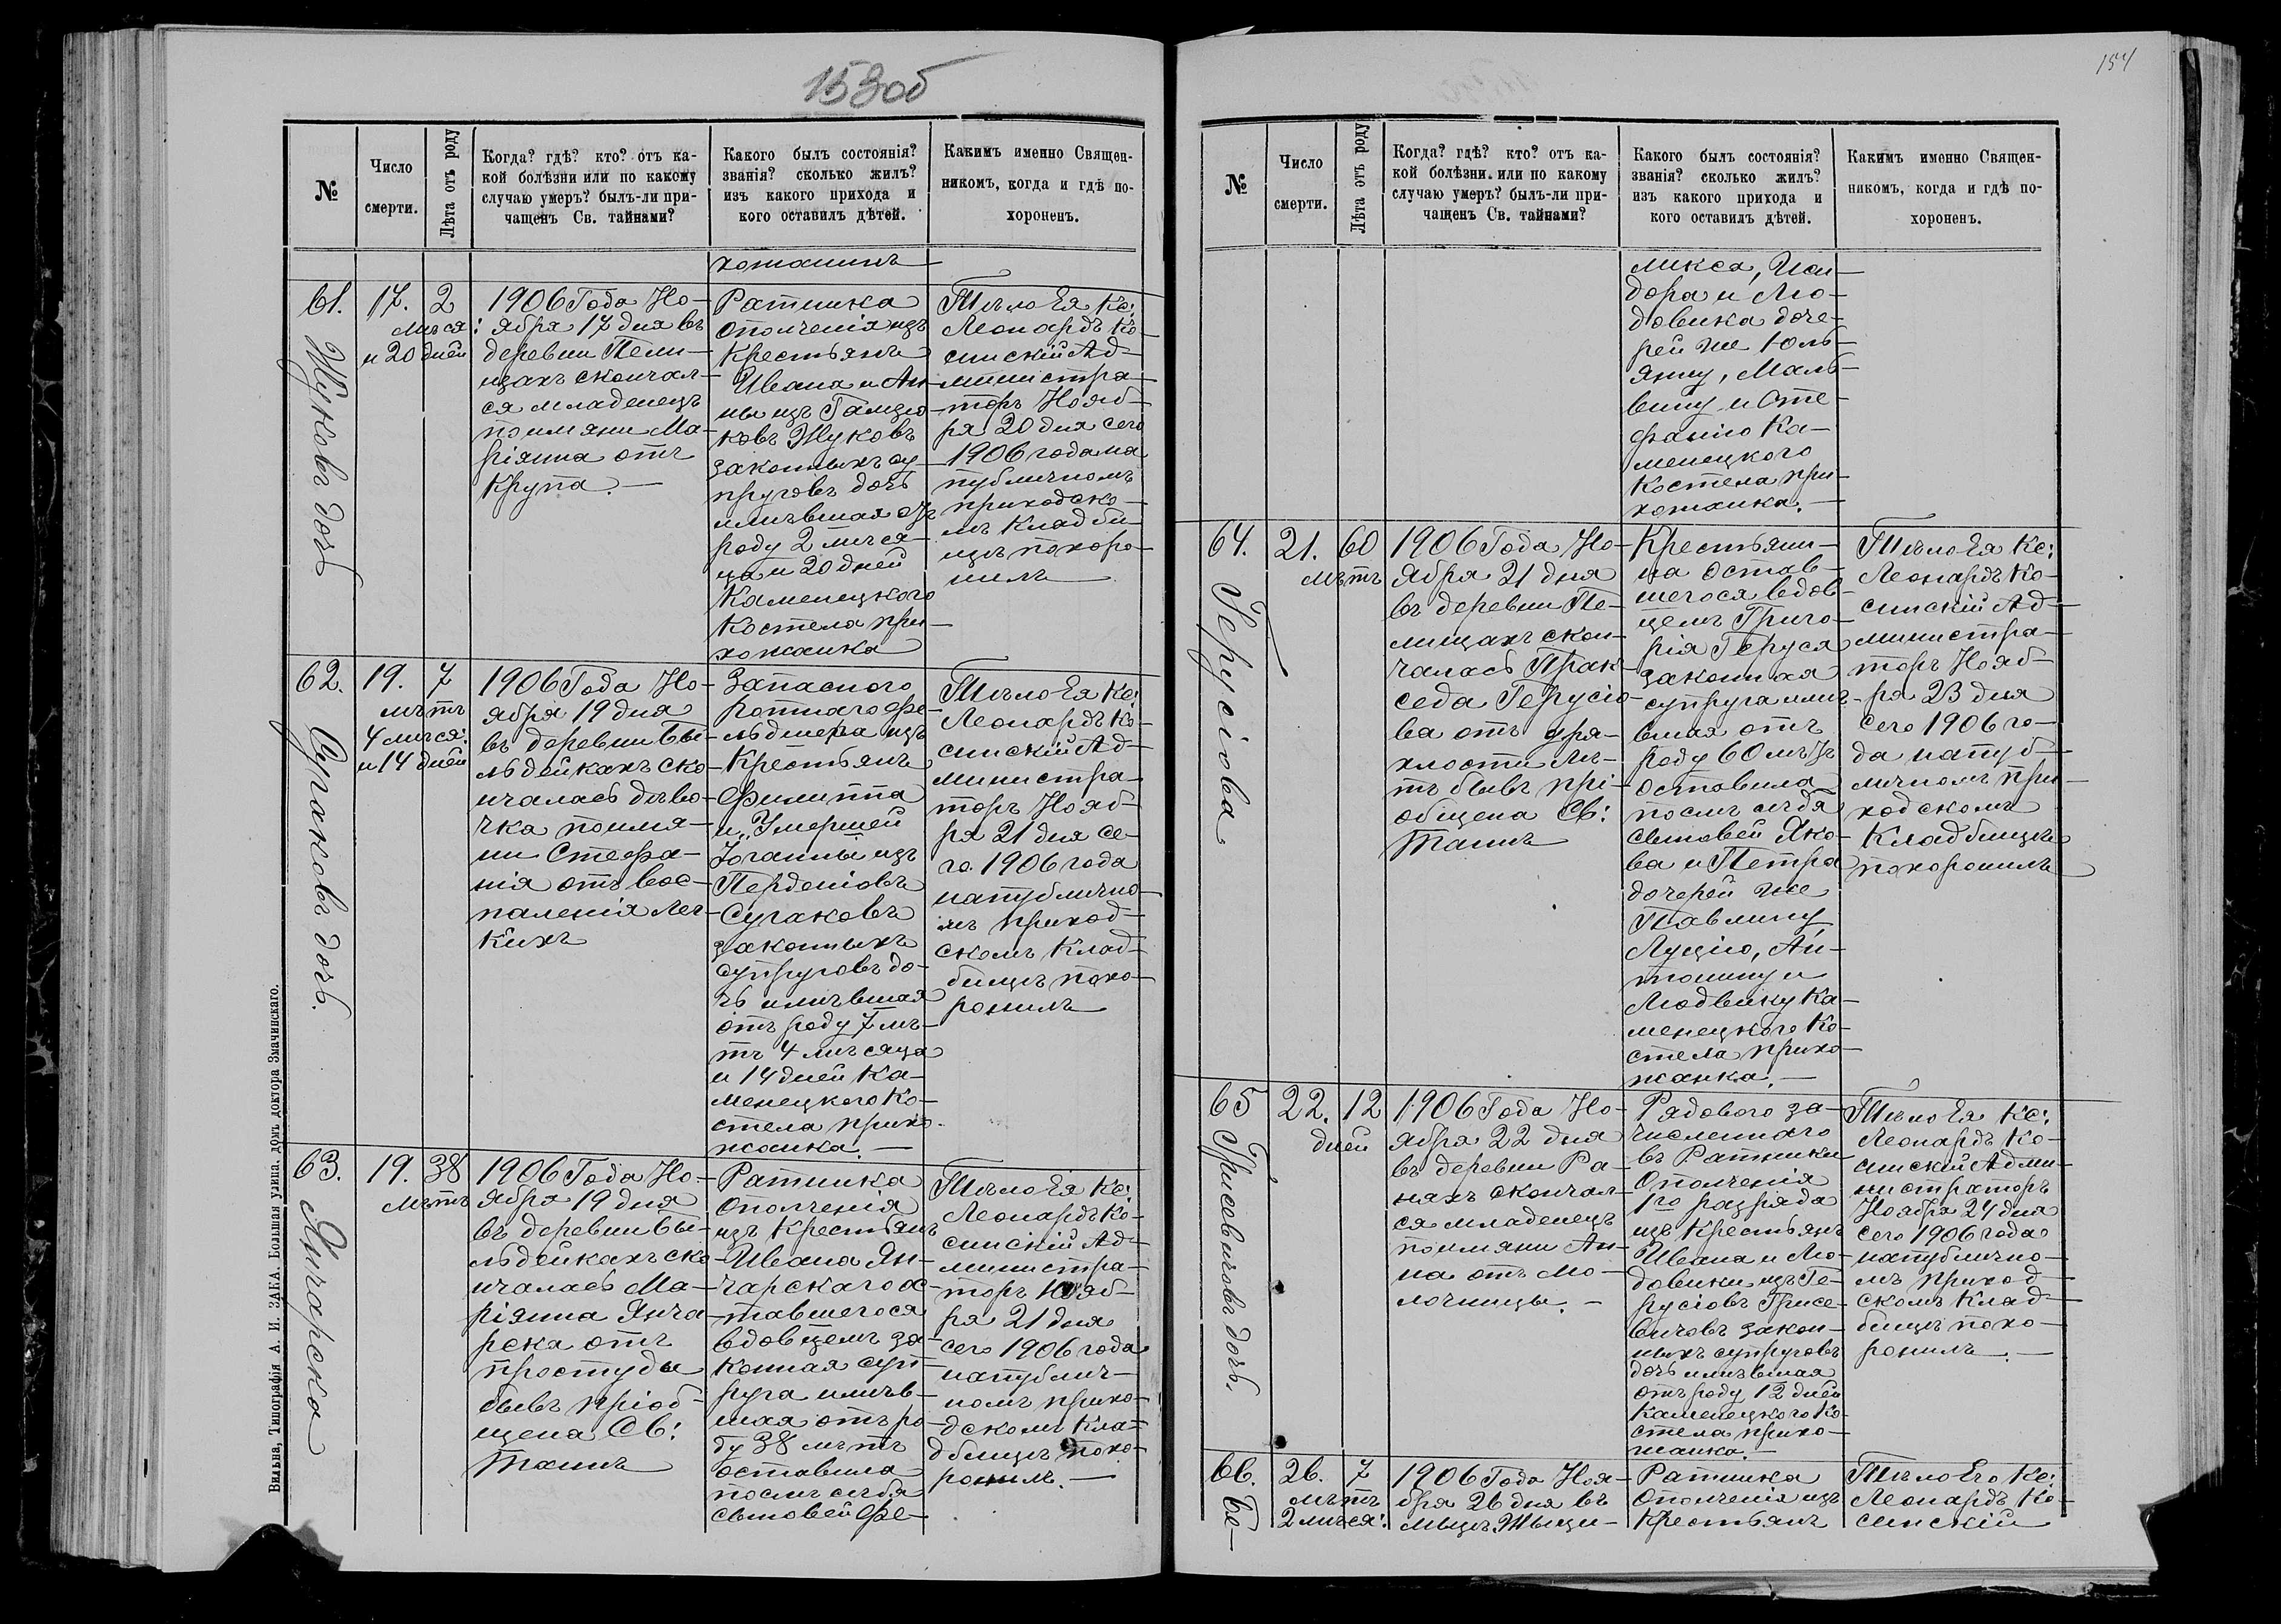 153об
№
Число
смерти.
Лѣта отъ роду
Когда? гдѣ? кто? отъ ка-
кой болѣзни или по какому
случаю умеръ? былъ-ли при-
чащенъ Св. тайнами?
Какого былъ состоянія?
званія? сколько жилъ?
изъ какого прихода и
кого оставилъ дѣтей.
Какимъ именно Священ-
никомъ, когда и гдѣ по-
хороненъ.
хожанинъ
61.
Жуковъ дочь
17.
2
мѣся:
и 20 дней
1906 Года Но-
ября 17 дня въ
деревни Пели-
щахъ скончал-
ся младенецъ
поимяни Ма-
ріянна отъ
Крупа. —
Ратника
Ополченія изъ
Крестьянъ
Ивана и Ан-
ны изъ
ковъ Жуковъ
законныхъ су-
пруговъ дочь
имѣвшая отъ
роду 2 мѣся-
ца и 20 дней
Каменецкого
Костела при-
хожанка
Тѣло Ея Кс:
Леонардъ Ко-
синскій Ад-
министра-
торъ Нояб-
ря 20 дня сего
1906 года на
публичномъ
приходско-
мъ Кладби-
щѣ похоро-
нилъ
62.
Сугаковъ дочь.
19.
7
лѣтъ
4 мѣся:
и 14 дней
1906 Года Но-
ября 19 дня
въ деревни Бы-
льдейкахъ ско-
нчалась дѣво-
чка поимя-
ни Стефа-
нія отъ вос-
паленія лег-
кихъ
Запасного
Ротнаго фе-
льдшера изъ
Крестьянъ
Филиппа
и „Умершей
Іоганны изъ
Перденіовъ
Сугаковъ
законныхъ
супруговъ до-
чь имѣвшая
отъ роду 7 лѣ-
тъ 4 мѣсяца
и 14 дней Ка-
менецкого Ко-
стела прихо-
жанка. —
Тѣло Ея Кс:
Леонардъ Ко-
синскій Ад-
министра-
торъ Нояб-
ря 21 дня се-
го 1906 года
на публично-
мъ приход-
скомъ Клад-
бищѣ похо-
ронилъ
63.
Янчарска
19.
38
лѣтъ
1906 Года Но-
ября 19 дня
въ деревни Бы-
льдейкахъ ско-
нчалась Ма-
ріянна Янча-
рска отъ
простуды
бывъ пріоб-
щена Св:
Таинъ
Ратника
Ополченія
изъ Крестьянъ
Ивана Ян-
чарскаго ос-
тавшегося
вдовцемъ за-
конная суп-
руга имѣв-
шая отъ ро-
ду 38 лѣтъ
оставила
послѣ себя
сыновей Фе-
Тѣло Ея Кс:
Леонардъ Ко-
синскій Ад-
министра-
торъ Нояб-
ря 21 дня
сего 1906 года
на публич-
номъ прихо-
дскомъ Кла-
дбищѣ похо-
ронилъ. —
Вильна, Типографія А. И. ЗАКА. Большая улица. домъ доктора Змачинскаго.
154
№
Число
смерти.
Лѣта отъ роду
Когда? гдѣ? кто? отъ ка-
кой болѣзни или по какому
случаю умеръ? былъ-ли при-
чащенъ Св. тайнами?
Какого былъ состоянія?
званія? сколько жилъ?
изъ какого прихода и
кого оставилъ дѣтей.
Какимъ именно Священ-
никомъ, когда и гдѣ по-
хороненъ.
ликса, Иси-
дора и Лю-
довика доче-
рей же Юль-
янну, Маль-
вину и Сте-
фанію Ка-
менецкого
Костела при-
хожанка. —
64.
Герусіова.
21.
60
лѣтъ
1906 Года Но-
ября 21 дня
въ деревни Пе-
лищахъ скон-
чалась Прак-
седа Герусіо-
ва отъ дря-
хлости лѣ-
тъ бывъ прі-
общена Св:
Таинъ
Крестьяни-
на остав-
шегося вдов-
цемъ Григо-
рія Геруся
законная
супруга имѣ-
вшая отъ
роду 60 лѣтъ
оставила
послѣ себя
сыновей Яко-
ва и Петра
дочерей же
Павлину
Луцію, Ан-
тонину и
Людвику Ка-
менецкого Ко-
стела прихо-
жанка. —
Тѣло Ея Кс:
Леонардъ Ко-
синскій Ад-
министра-
торъ Нояб-
ря 23 дня
сего 1906 го-
да на пуб-
личномъ при-
ходскомъ
Кладбищѣ
похоронилъ
65
Грисевичовъ дочь.
22.
12
дней
1906 Года Но-
ября 22 дня
въ деревни Ра-
сняхъ скончал-
ся младенецъ
поимяни Ан-
на отъ мо-
лочницы. —
Рядового за-
численнаго
въ Ратники
Ополченія
1го разряда
изъ Крестьянъ
Ивана и Лю-
довики изъ Ге-
русіовъ Грисе-
вичовъ закон-
ныхъ супруговъ
дочь имѣвшая
отъ роду 12 дней
Каменецкого Ко-
стела прихо-
жанка. —
Тѣло Ея Кс:
Леонардъ Ко-
синскій Адми-
нистраторъ
Ноября 24 дня
сего 1906 года
на публично-
мъ приход-
скомъ Клад-
бищѣ похо-
ронилъ. —
66.
Бе-
26.
7
лѣтъ
2 мѣся:
1906 Года Ноя-
бря 26 дня въ
Ратника
Ополченія изъ
Крестьянъ
Тѣло Его Кс:
Леонардъ Ко-
синскій